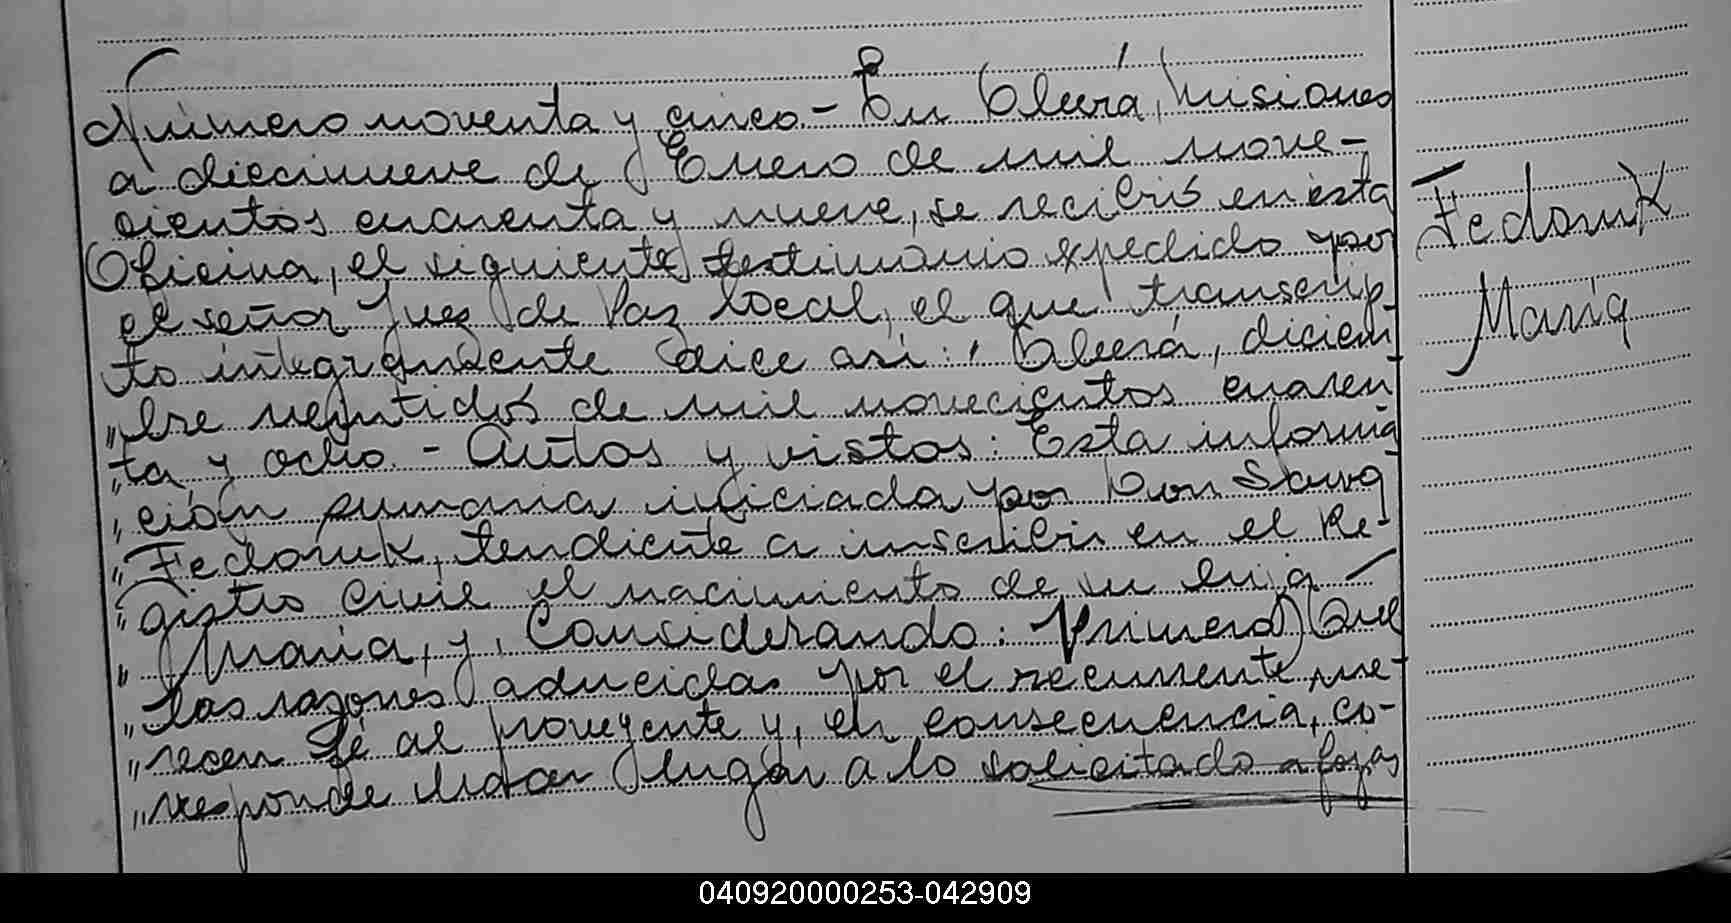 Número noventa y cinco.- En Oberá, Misiones
a diecinueve de Enero de mil nove-
cientos cincuenta y nueve, se recibió en esta
Oficina, el siguiente testimonio expedido por
el señor Juez de Paz local, el que transcrip-
to íntegramente dice así: "Oberá, diciem
"bre veintidós de mil novecientos cuaren
"ta y ocho.- Autos y vistos: Esta informa
"ción sumaria iniciada por Don
"Fedoruk, tendiente a inscribir en el Re-
"gistro Civil el nacimiento de su hija —
"María, y, Considerando: Primero) Que
"las razones aducidas por el recurrente me-
"recen fé al proveyente y, en consecuencia, co-
"responde hacer lugar a lo solicitado a fojas
Fedoruk
María
040920000253-042909